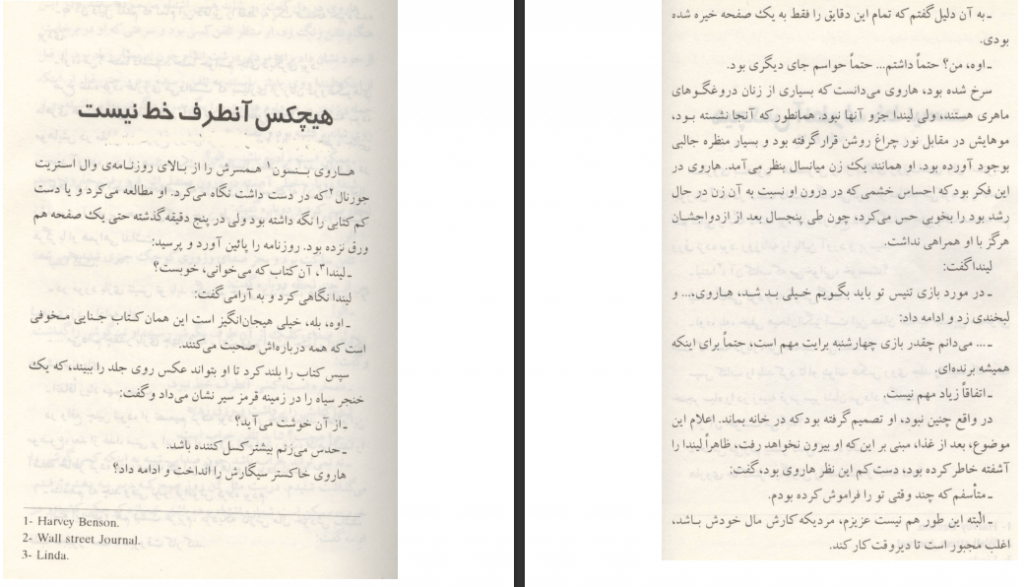 هیچکس آنطرف خط نیست
هـاروی بـنسون۱ هـمسرش را از بـالای روزنـامه‌ی وال اسـتریت
جورنال۲ که در دست داشت نگاه می‌کرد. او مطالعه می‌کرد و یا دست
کم کتابی را نگه داشته بود ولی در پنج دقیقه گذشته حتی یک صفحه هم
ورق نزده بود. روزنامه را پائین آورد و پرسید:
ـ لیندا۳، آن کتاب که می‌خوانی، خوبست؟
لیندا نگاهی کرد و به آرامی گفت:
ـ اوه، بله، خیلی هیجان‌انگیز است این همان کـتاب جـنایی مـخوفی
است که همه درباره‌اش صحبت می‌کنند.
سپس کتاب را بلند کرد تا او بتواند عکس روی جلد را ببیند، که یک
خنجر سیاه را در زمینه قرمز سیر نشان می‌داد و گفت:
ـ از آن خوشت می‌آید؟
ـ حدس می‌زنم بیشتر کسل‌کننده باشد.
هاروی خاکستر سیگارش را انداخت و ادامه داد؟
1- Harvey Benson.
2- Wall street Journal.
3- Linda.
ـ به آن دلیل گفتم که تمام این دقایق را فقط به یک صفحه خیره شده
بودی.
ـ اوه، من؟ حتماً داشتم... حتماً حواسم جای دیگری بود.
سرخ شده بود، هاروی می‌دانست که بسیاری از زنان دروغگـوهای
ماهری هستند، ولی لیندا جزو آنها نبود. همانطور که آنجا نشسته بـود،
موهایش در مقابل نور چراغ روشن قرار گرفته بود و بسیار منظره جالبی
بوجود آورده بود. او همانند یک زن میانسال بنظر می‌آمد. هاروی در
این فکر بود که احساس خشمی که در درون او نسبت به آن زن در حال
رشد بود را بخوبی حس می‌کرد، چون طی پنجسال بعد از ازدواجشـان
هرگز با او همراهی نداشت.
لیندا گفت:
ـ در مورد بازی تنیس تو باید بگـویم خـیلی بـد شـد، هـاروی،... و
لبخندی زد و ادامه داد:
ـ ... می‌دانم چقدر بازی چهارشنبه برایت مهم است، حتماً برای اینکه
همیشه برنده‌ای.
ـ اتفاقاً زیاد مهم نیست.
در واقع چنین نبود، او تصمیم گرفته بود که در خانه بماند. اعلام این
موضوع، بعد از غذا، مبنی بر این‌که او بیرون نخواهد رفت، ظاهراً لیندا را
آشفته خاطر کرده بود، دست کم این نظر هاروی بود، گفت:
ـ متأسفم که چند وقتی تو را فراموش کرده بودم.
ـ البته این طور هم نیست عزیزم، مردیکه کارش مال خودش بـاشد،
اغلب مجبور است تا دیروقت کار کند.